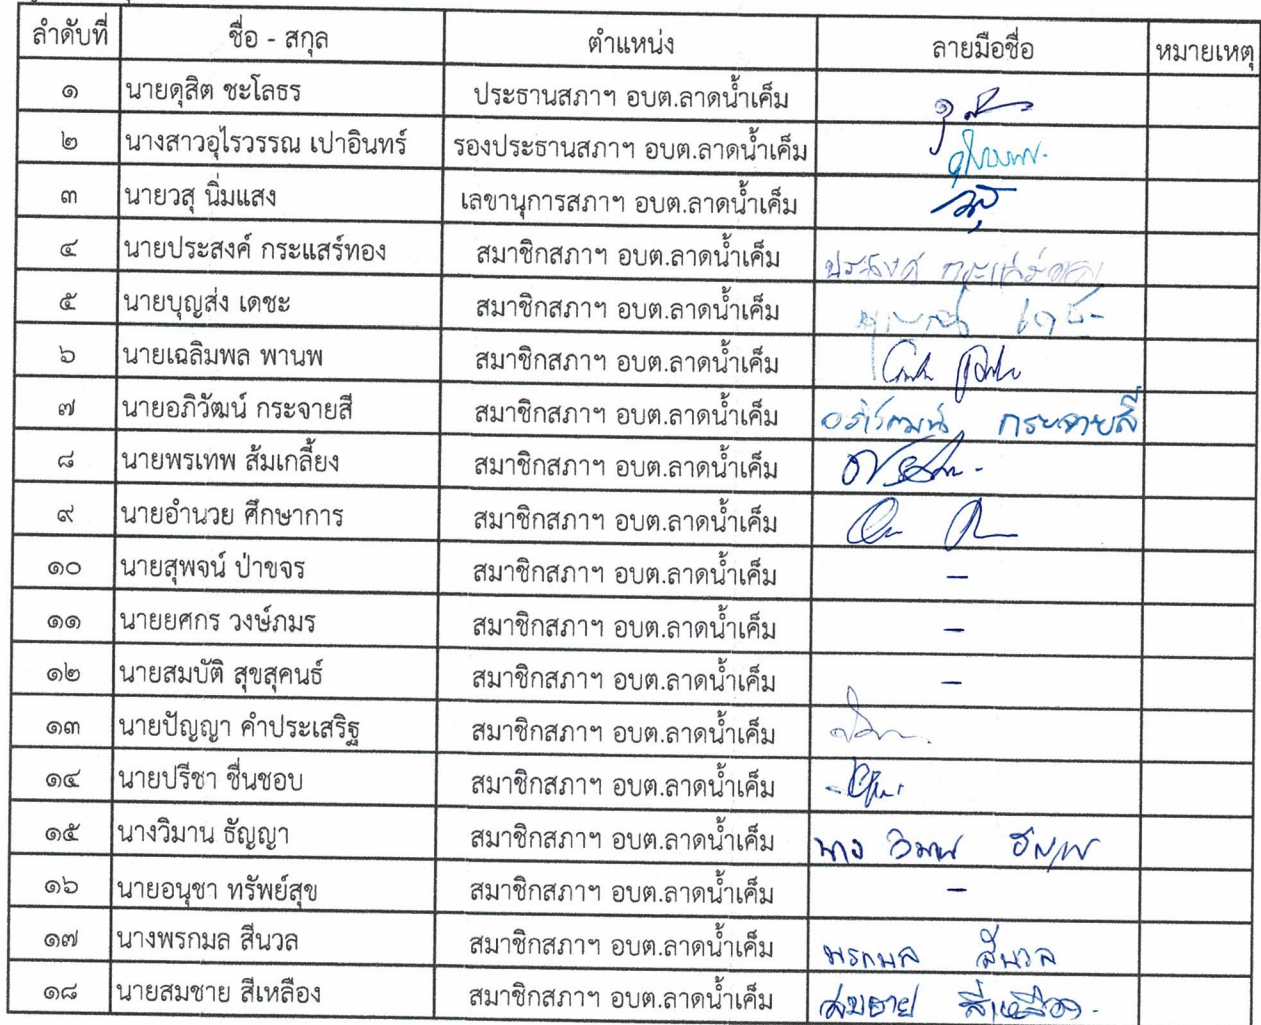 ลำดับที่ ชื่อ - สกุล ตำแหน่ง ลายมือชื่อ หมายเหตุ
๑ นายดุสิต ชะโลธร ประธานสภาฯ อบต.ลาดน้ำเค็ม
๒ นางสาวอุไรวรรณ เปาอินทร์ รองประธานสภาฯ อบต.ลาดน้ำเค็ม
๓ นายวสุ นิ่มแสง เลขานุการสภาฯ อบต.ลาดน้ำเค็ม วสุ
๔ นายประสงค์ กระแสร์ทอง สมาชิกสภาฯ อบต.ลาดน้ำเค็ม ประสงค์ กระแสร์ทอง
๕ นายบุญส่ง เดชะ สมาชิกสภาฯ อบต.ลาดน้ำเค็ม บุญส่ง เดชะ
๖ นายเฉลิมพล พานพ สมาชิกสภาฯ อบต.ลาดน้ำเค็ม
๗ นายอภิวัฒน์ กระจายสี สมาชิกสภาฯ อบต.ลาดน้ำเค็ม อภิวัฒน์ กระจายสี
๘ นายพรเทพ ส้มเกลี้ยง สมาชิกสภาฯ อบต.ลาดน้ำเค็ม
๙ นายอำนวย ศึกษาการ สมาชิกสภาฯ อบต.ลาดน้ำเค็ม
๑๐ นายสุพจน์ ป่าขจร สมาชิกสภาฯ อบต.ลาดน้ำเค็ม -
๑๑ นายยศกร วงษ์ภมร สมาชิกสภาฯ อบต.ลาดน้ำเค็ม -
๑๒ นายสมบัติ สุขสุคนธ์ สมาชิกสภาฯ อบต.ลาดน้ำเค็ม -
๑๓ นายปัญญา คำประเสริฐ สมาชิกสภาฯ อบต.ลาดน้ำเค็ม
๑๔ นายปรีชา ชื่นชอบ สมาชิกสภาฯ อบต.ลาดน้ำเค็ม
๑๕ นางวิมาน ธัญญา สมาชิกสภาฯ อบต.ลาดน้ำเค็ม นาง วิมาน ธัญญา
๑๖ นายอนุชา ทรัพย์สุข สมาชิกสภาฯ อบต.ลาดน้ำเค็ม -
๑๗ นางพรกมล สีนวล สมาชิกสภาฯ อบต.ลาดน้ำเค็ม พรกมล สีนวล
๑๘ นายสมชาย สีเหลือง สมาชิกสภาฯ อบต.ลาดน้ำเค็ม สมชาย สีเหลือง